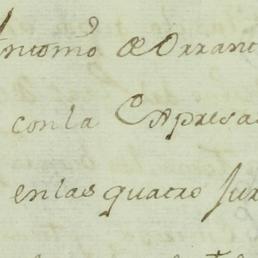 Antonio de Orrant
con la Expresa
en las quatro Jur